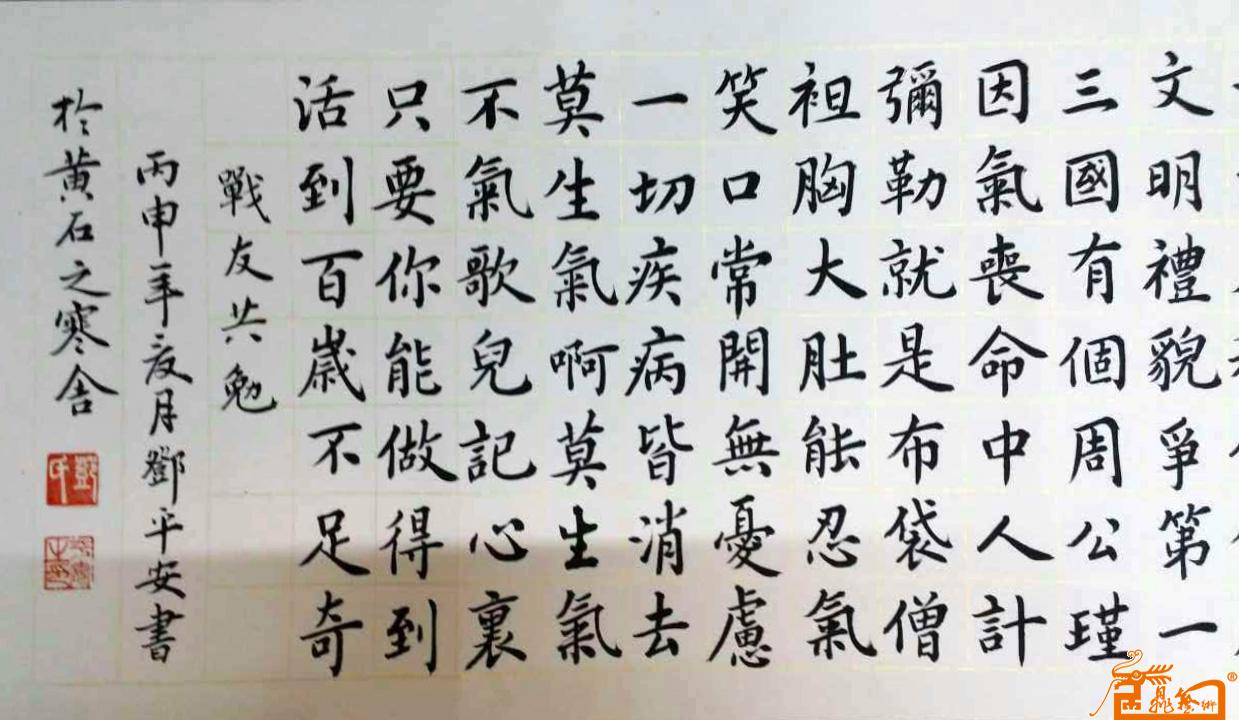 文明禮貌爭第一
三國有個周公瑾
因氣喪命中人計
彌勒就是布袋僧
袒胸大肚能忍氣
笑口常開無憂慮
一切疾病皆消去
莫生氣啊莫生氣
不氣歌兒記心裏
只要你能做得到
活到百歲不足奇
戰友共勉
丙申年夏月鄧平安書
於黃石之寒舍
鄧氏